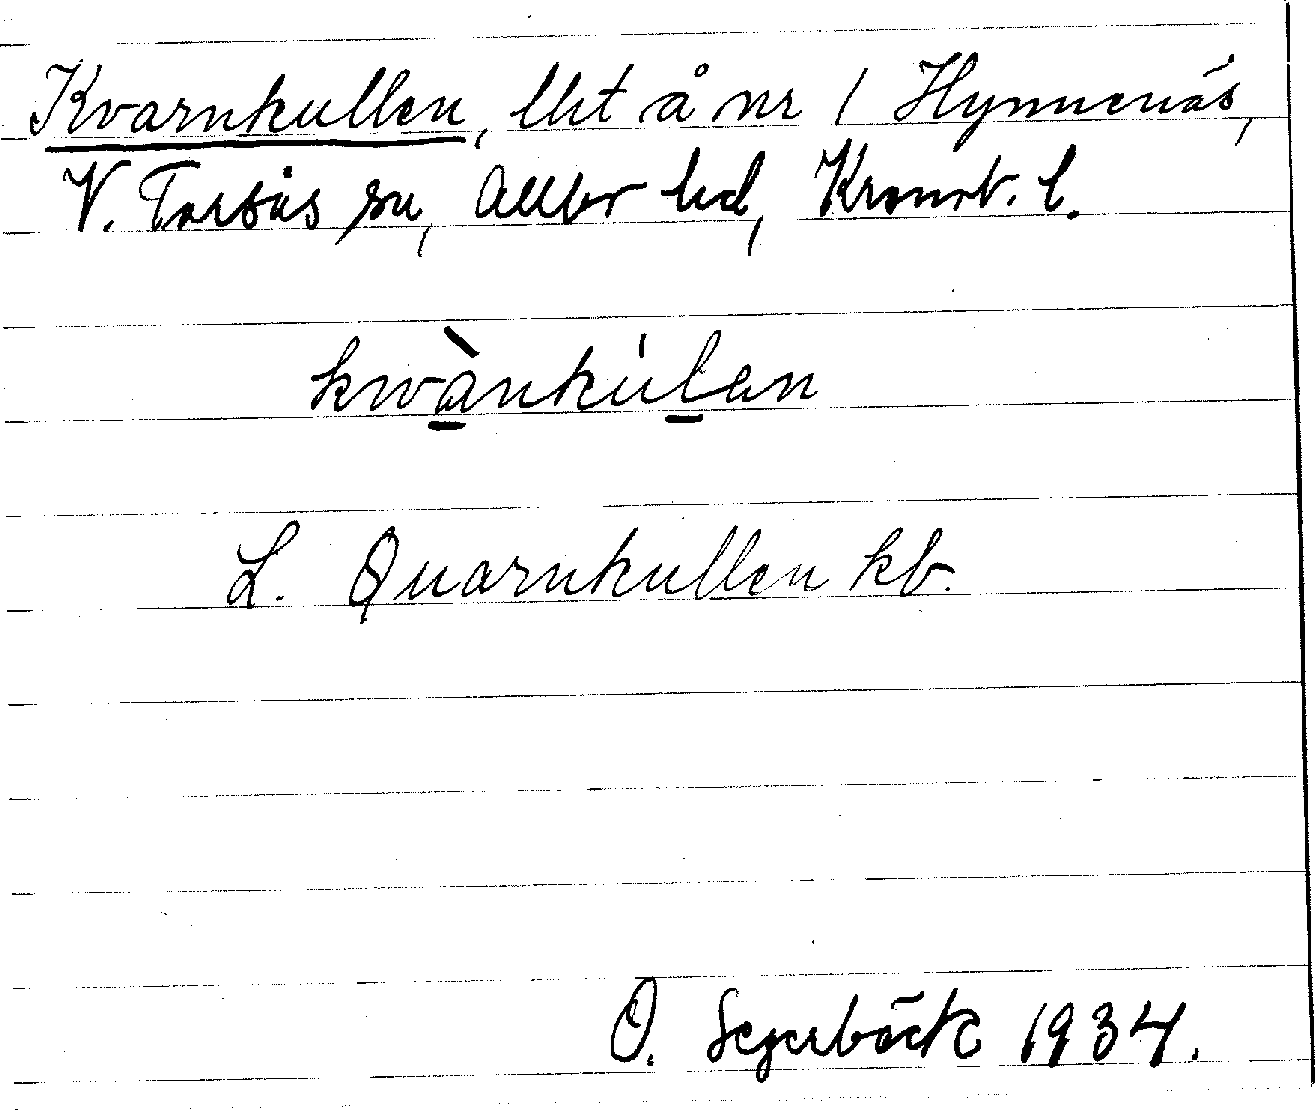 Kvarnkullen, lht å nr 1 Hynnenäs,
V. Torsås sn, Allbo hd, Kronob. l.
kwànkúlen
L. Quarnkullen kb.
O. Segerbäck 1934.